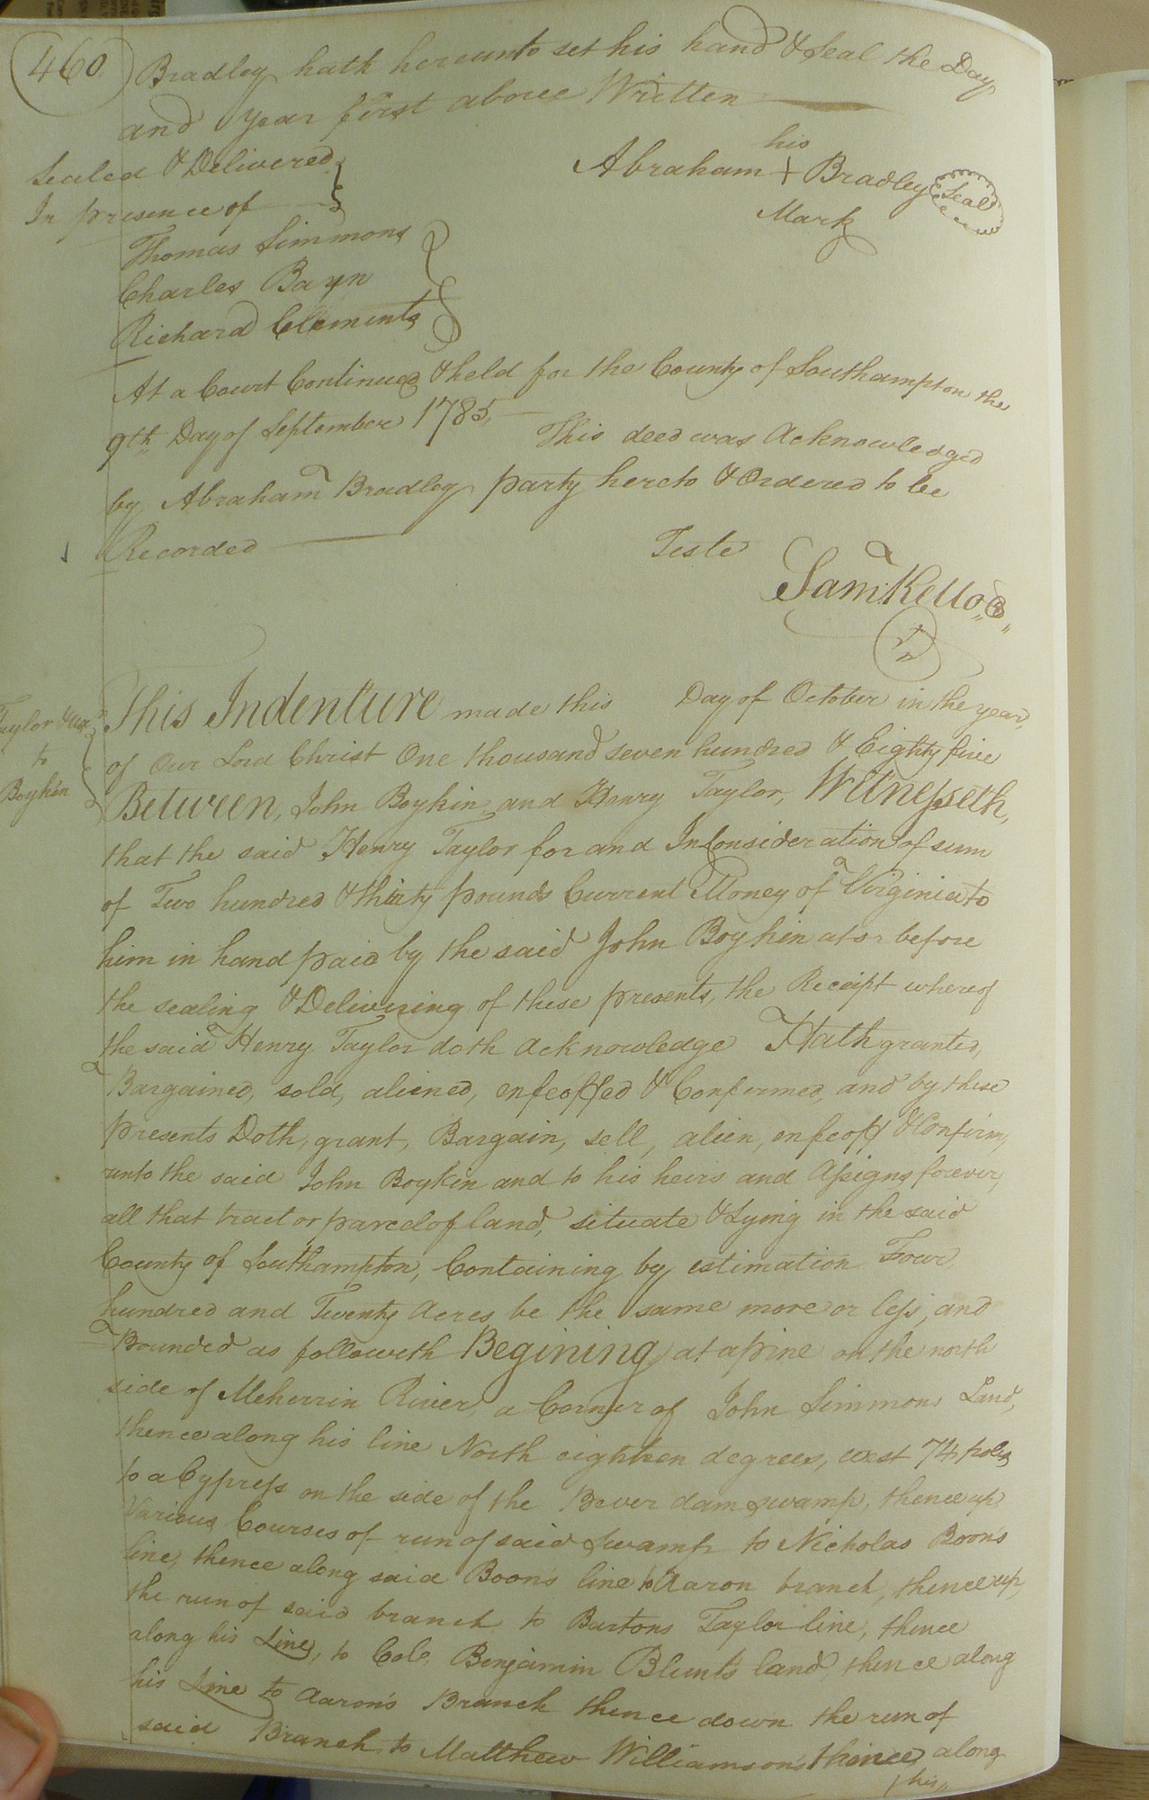 460
Bradley hath hereunto set his hand & Seal the Day
and Year first above Written
Sealed & Delivered
In presence of
his
Abraham + Bradley Seal
Mark
Thomas Simmons
Charles Bayn
Richard Clements
At a Court Continued & held for the County of Southampton the
9th Day of September 1785 This deed was Acknowledged
by Abraham Bradley party hereto & Ordered to be
Recorded
Teste
Saml Kello
Taylor & ux
to
Boykin
This Indenture made this Day of October in the year
of Our Lord Christ One thousand seven hundred & Eighty five
Between, John Boykin and Henry Taylor, Witnesseth,
that the said Henry Taylor for and In Consideration of sum
of Two hundred & thirty pounds Current Money of Virginia to
him in hand paid by the said John Boykin at or before
the sealing & Delivering of these presents, the Receipt whereof
the said Henry Taylor doth acknowledge Hath granted,
Bargained, sold, aliened, enfeoffed & Confirmed, and by these
presents Doth, grant, Bargain, sell, alien, enfeoff & Confirm,
unto the said John Boykin and to his heirs and Assigns forever,
all that tract or parcel of land, situate & Lying in the said
County of Southampton, Containing by estimation Four
hundred and Twenty Acres be the same more or less, and
Bounded as followeth Begining at a pine on the north
side of Meherrin River, a Corner of John Simmons Land,
thence along his line North eighteen degrees, west 74 poles
to a Cypress on the side of the Bever dam swamp, thence up
Various Courses of run of said Swamp to Nicholas Boons
line, thence along said Boons line to Aaron branch, thence up
the run of said branch to Bartons Taylor line, thence
along his Line, to Colo. Benjamin Blunts land, thence along
his Line to Aaron's Branch thence down the run of
said Branch to Matthew Williamson's thence along
his